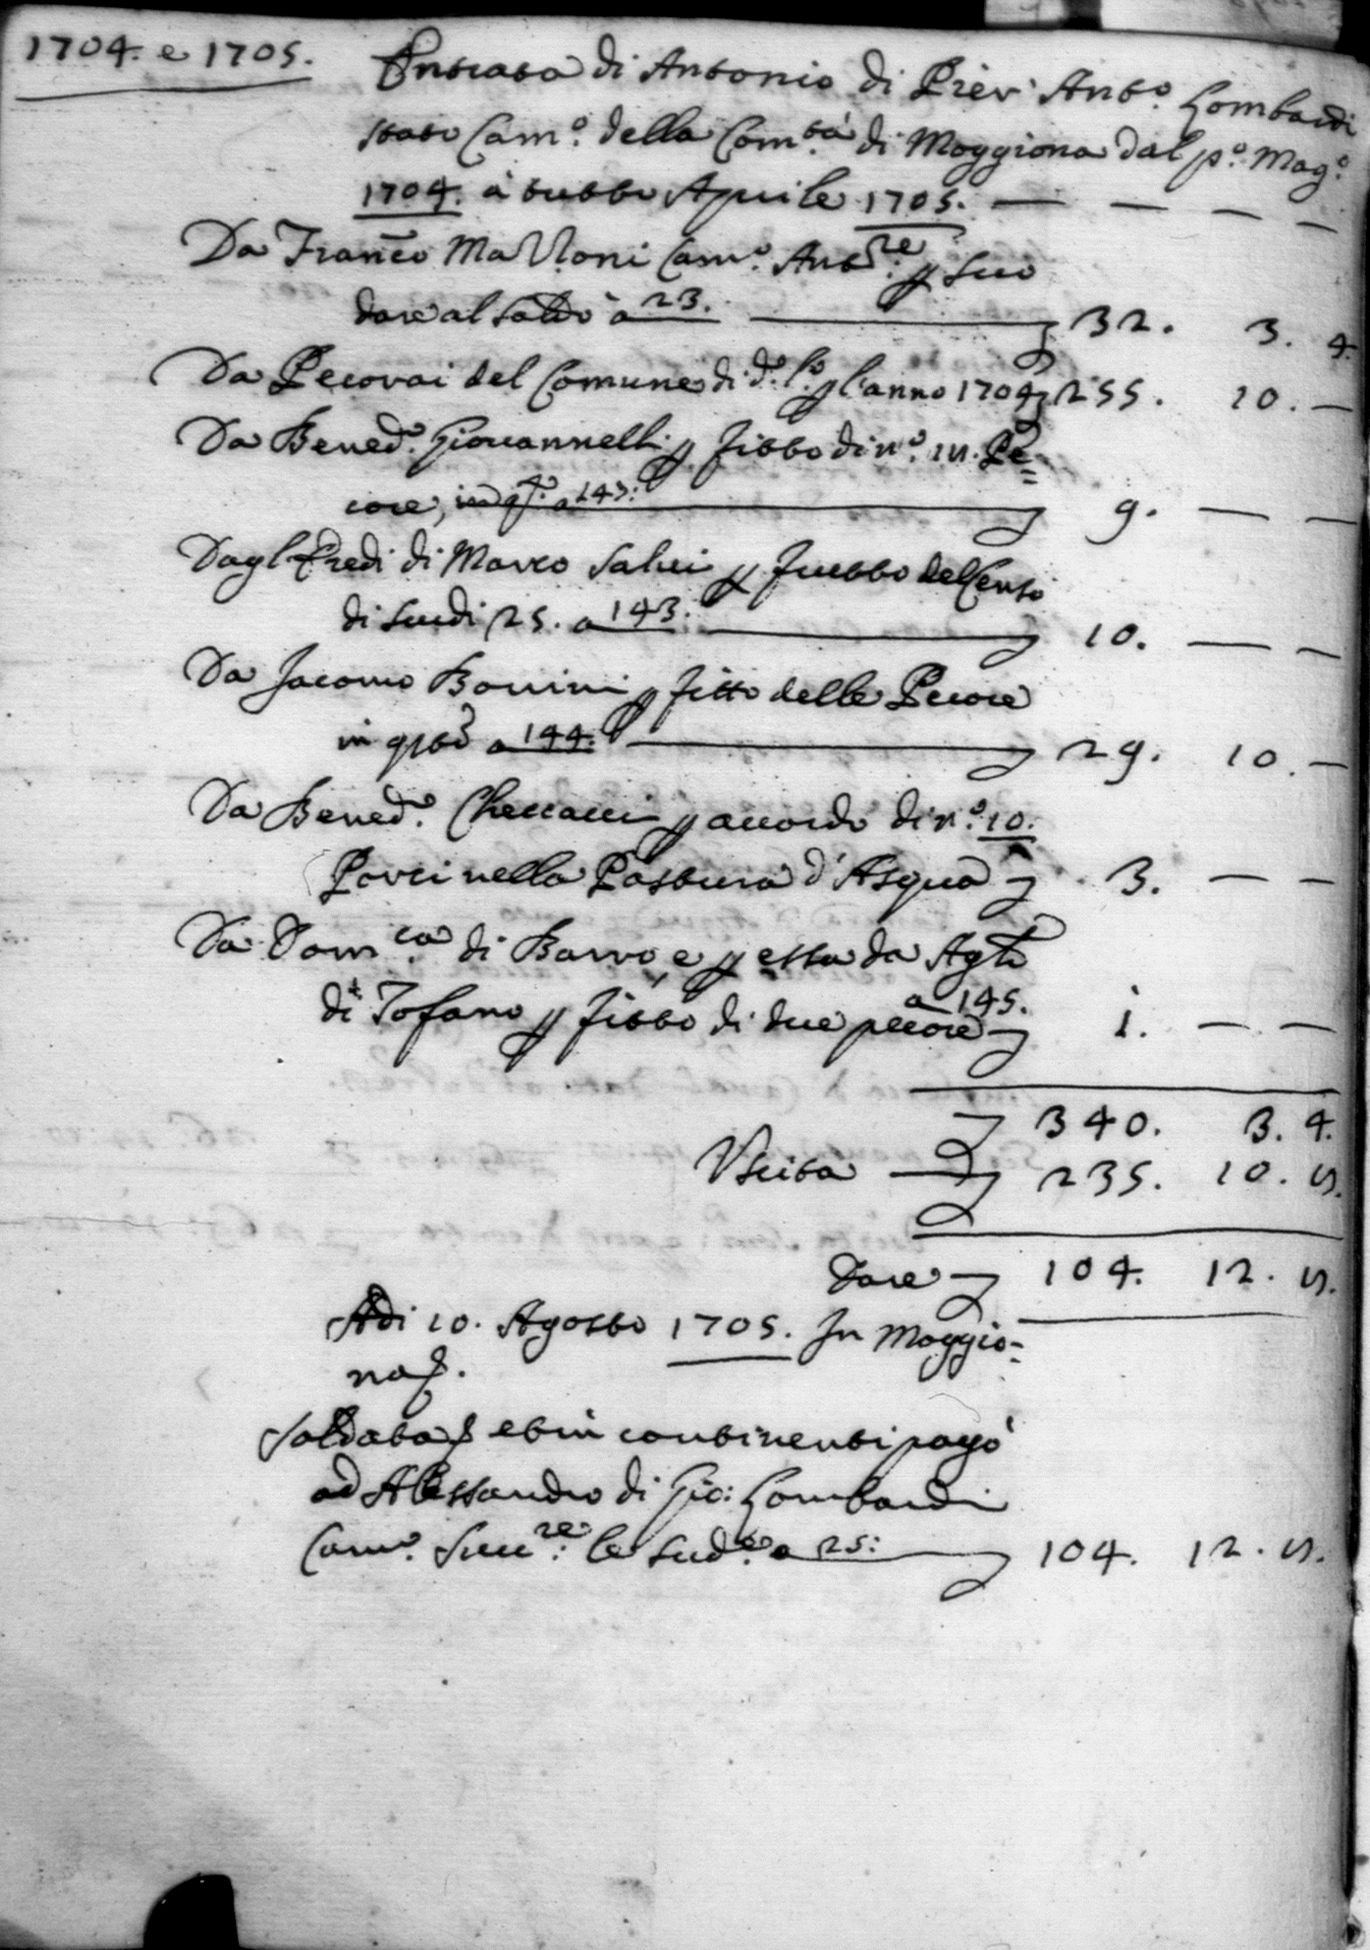 1704. e 1705.
Entrata di Antonio di Pier Ant.o Lombardi
stato Cam.o della Com.tà di Moggiona dal p.o Mag.o
1704. à tutto Aprile 1705. — — — —
Da Fran.co Mazzoni Cam.o Ant.re p suo
dare al saldo à 23. — 32. 3. 4.
Da Pecorai del Comune di d.o l.o p l'anno 1704 255. 10. —
Da Bened.o Giovannelli p fitto di n.o 18. Pe=
core, a 143: — 9. — —
Dagl'Eredi di Marco Salvi p frutto del Censo
di scudi 25. a 143. — 10. — —
Da Jacomo Bonini p fitto delle Pecore
in q.sto a 144. — 29. 10. —
Da Bened.o Checcacci p accordo di n.o 10.
Porci nella Pastura d'Asqua 3. — —
Da Dom.ca di Barro, e p essa da Ag.to
di Tofano p fitto di due pecore a 145. 1. — —
340. 3. 4.
Uscita — 235. 10. 8.
Dare 104. 12. 8.
Adì 10. Agosto 1705. In Moggio=
na.
Saldata et in contanti pagò
ad Alessandro di Gio: Lombardi
Cam.o Succ.re le sud.e a 25: — 104. 12. 8.